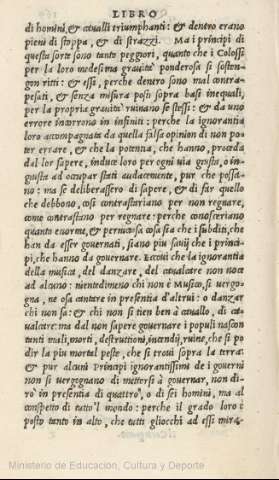 LIBRO
di homini, & cavalli triumphanti: & dentro erano
pieni di stoppa, & di strazzi. Ma i principi di
questa sorte sono tanto peggiori, quanto che i Colossi
per la loro medesima gravità ponderosa si sosten-
gon ritti: & essi, perche dentro sono mal contra-
pesati, & senza misura posti sopra basi inequali,
per la propria gravità ruinano se stessi: & da uno
errore incorrono in infiniti: perche la ignorantia
loro accompagnata da quella falsa opinion di non po-
ter errare, & che la potentia, che hanno, proceda
dal lor sapere, induce loro per ogni via giusta, o in-
giusta ad occupar stati audacemente, pur che possa-
no: ma se deliberassero di sapere, & di far quello
che debbono, cosi contrastariano per non regnare,
come contrastano per regnare: perche conosceriano
quanto enorme, & perniciosa cosa sia che i subditi, che
han da esser governati, siano piu savij che i princi-
pi, che hanno da governare. Eccovi che la ignorantia
della musica, del danzare, del cavalcare non noce
ad alcuno: nientedimeno chi non è Musico, si vergo-
gna, ne osa cantare in presentia d'altrui: o danzar
chi non sa: & chi non si tien ben à cavallo, di ca-
valcare: ma dal non sapere governare i populi nascon
tanti mali, morti, destruttioni, incendij, ruine, che si po
dir la piu mortal peste, che si trovi sopra la terra:
& pur alcuni Principi ignorantissimi de i governi
non si vergognano di mettersi à governar, non di-
rò in presentia di quattro, o di sei homini, ma al
conspetto di tutto'l mondo: perche il grado loro è
posto tanto in alto, che tutti gliocchi ad essi mira-
Ministerio de Educación, Cultura y Deporte